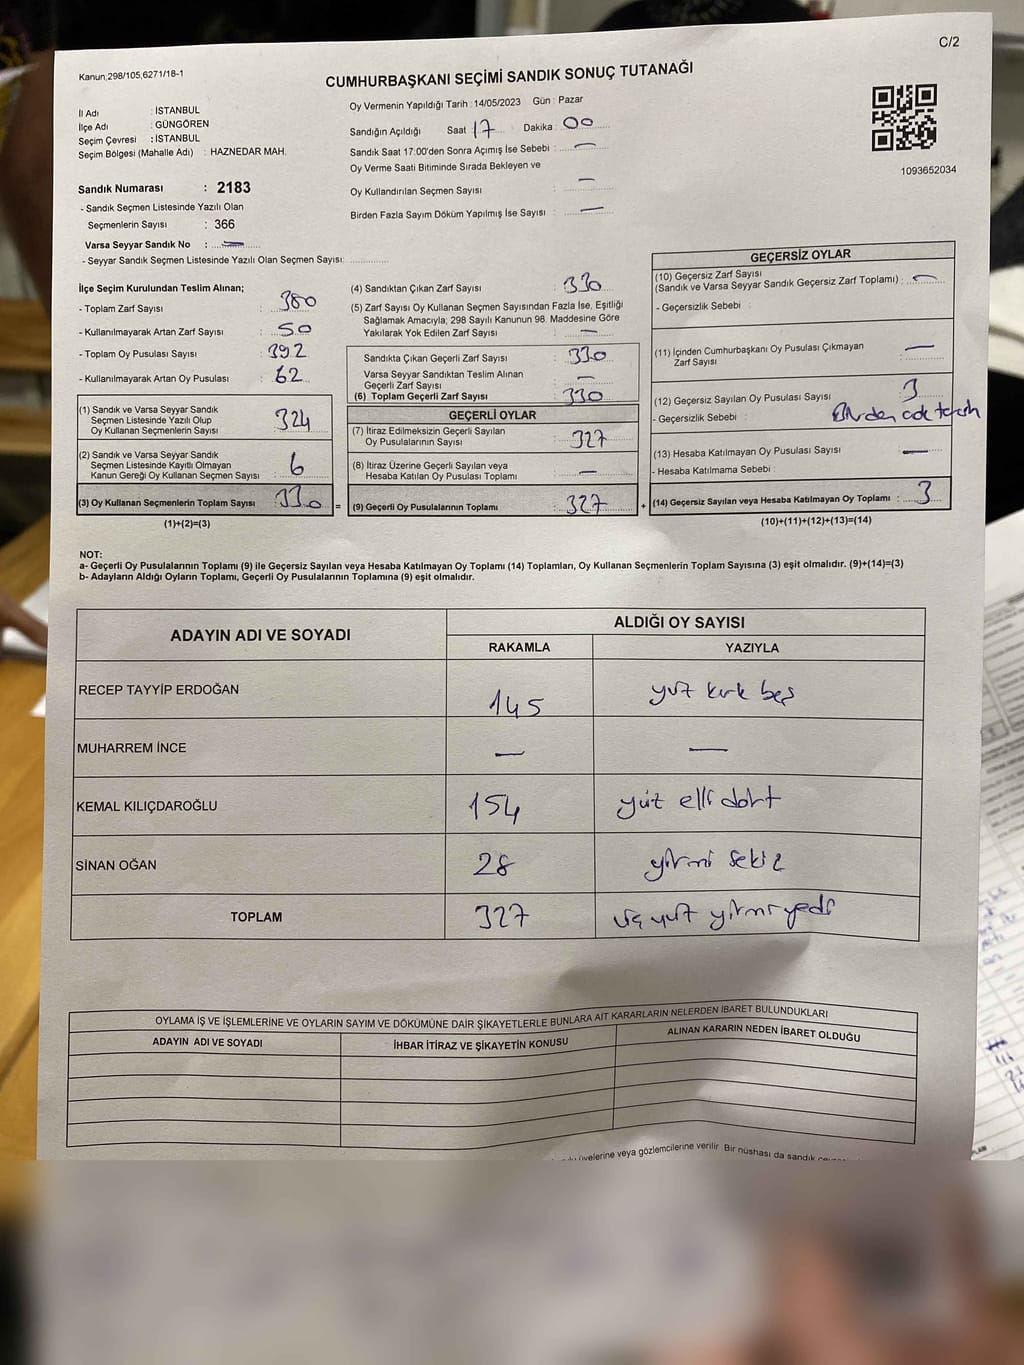 C/2
Kanun;298/105,6271/18-1
CUMHURBAŞKANI SEÇİMİ SANDIK SONUÇ TUTANAĞI
İl Adı : İSTANBUL
İlçe Adı : GÜNGÖREN
Seçim Çevresi : İSTANBUL
Seçim Bölgesi (Mahalle Adı) : HAZNEDAR MAH.
Oy Vermenin Yapıldığı Tarih : 14/05/2023 Gün : Pazar
Sandığın Açıldığı Saat 17 Dakika : 00
Sandık Saat 17:00'den Sonra Açımış İse Sebebi : —
Oy Verme Saati Bitiminde Sırada Bekleyen ve
Oy Kullandırılan Seçmen Sayısı : —
Birden Fazla Sayım Döküm Yapılmış İse Sayısı : —
1093652034
Sandık Numarası : 2183
- Sandık Seçmen Listesinde Yazılı Olan
Seçmenlerin Sayısı : 366
Varsa Seyyar Sandık No : —
- Seyyar Sandık Seçmen Listesinde Yazılı Olan Seçmen Sayısı:
İlçe Seçim Kurulundan Teslim Alınan;
- Toplam Zarf Sayısı : 380
- Kullanılmayarak Artan Zarf Sayısı : 50
- Toplam Oy Pusulası Sayısı : 392
- Kullanılmayarak Artan Oy Pusulası : 62
(1) Sandık ve Varsa Seyyar Sandık
Seçmen Listesinde Yazılı Olup
Oy Kullanan Seçmenlerin Sayısı : 324
(2) Sandık ve Varsa Seyyar Sandık
Seçmen Listesinde Kayıtlı Olmayan
Kanun Gereği Oy Kullanan Seçmen Sayısı : 6
(3) Oy Kullanan Seçmenlerin Toplam Sayısı : 330
(1)+(2)=(3)
(4) Sandıktan Çıkan Zarf Sayısı : 330
(5) Zarf Sayısı Oy Kullanan Seçmen Sayısından Fazla İse, Eşitliği
Sağlamak Amacıyla; 298 Sayılı Kanunun 98. Maddesine Göre
Yakılarak Yok Edilen Zarf Sayısı : —
Sandıkta Çıkan Geçerli Zarf Sayısı : 330
Varsa Seyyar Sandıktan Teslim Alınan
Geçerli Zarf Sayısı : —
(6) Toplam Geçerli Zarf Sayısı : 330
GEÇERLİ OYLAR
(7) İtiraz Edilmeksizin Geçerli Sayılan
Oy Pusulalarının Sayısı : 327
(8) İtiraz Üzerine Geçerli Sayılan veya
Hesaba Katılan Oy Pusulası Toplamı : —
= (9) Geçerli Oy Pusulalarının Toplamı : 327 +
GEÇERSİZ OYLAR
(10) Geçersiz Zarf Sayısı
(Sandık ve Varsa Seyyar Sandık Geçersiz Zarf Toplamı) : —
- Geçersizlik Sebebi :
(11) İçinden Cumhurbaşkanı Oy Pusulası Çıkmayan
Zarf Sayısı : —
(12) Geçersiz Sayılan Oy Pusulası Sayısı : 3
- Geçersizlik Sebebi : Birden cok tercih
(13) Hesaba Katılmayan Oy Pusulası Sayısı : —
- Hesaba Katılmama Sebebi :
(14) Geçersiz Sayılan veya Hesaba Katılmayan Oy Toplamı : 3
(10)+(11)+(12)+(13)=(14)
NOT:
a- Geçerli Oy Pusulalarının Toplamı (9) ile Geçersiz Sayılan veya Hesaba Katılmayan Oy Toplamı (14) Toplamları, Oy Kullanan Seçmenlerin Toplam Sayısına (3) eşit olmalıdır. (9)+(14)=(3)
b- Adayların Aldığı Oyların Toplamı, Geçerli Oy Pusulalarının Toplamına (9) eşit olmalıdır.
ADAYIN ADI VE SOYADI ALDIĞI OY SAYISI
RAKAMLA YAZIYLA
RECEP TAYYİP ERDOĞAN 145 yuz kırk beş
MUHARREM İNCE — —
KEMAL KILIÇDAROĞLU 154 yüz elli dört
SİNAN OĞAN 28 yirmi sekiz
TOPLAM 327 üç yuz yirmi yedi
OYLAMA İŞ VE İŞLEMLERİNE VE OYLARIN SAYIM VE DÖKÜMÜNE DAİR ŞİKAYETLERLE BUNLARA AİT KARARLARIN NELERDEN İBARET BULUNDUKLARI
ADAYIN ADI VE SOYADI İHBAR İTİRAZ VE ŞİKAYETİN KONUSU ALINAN KARARIN NEDEN İBARET OLDUĞU
üyelerine veya gözlemcilerine verilir. Bir nüshası da sandık